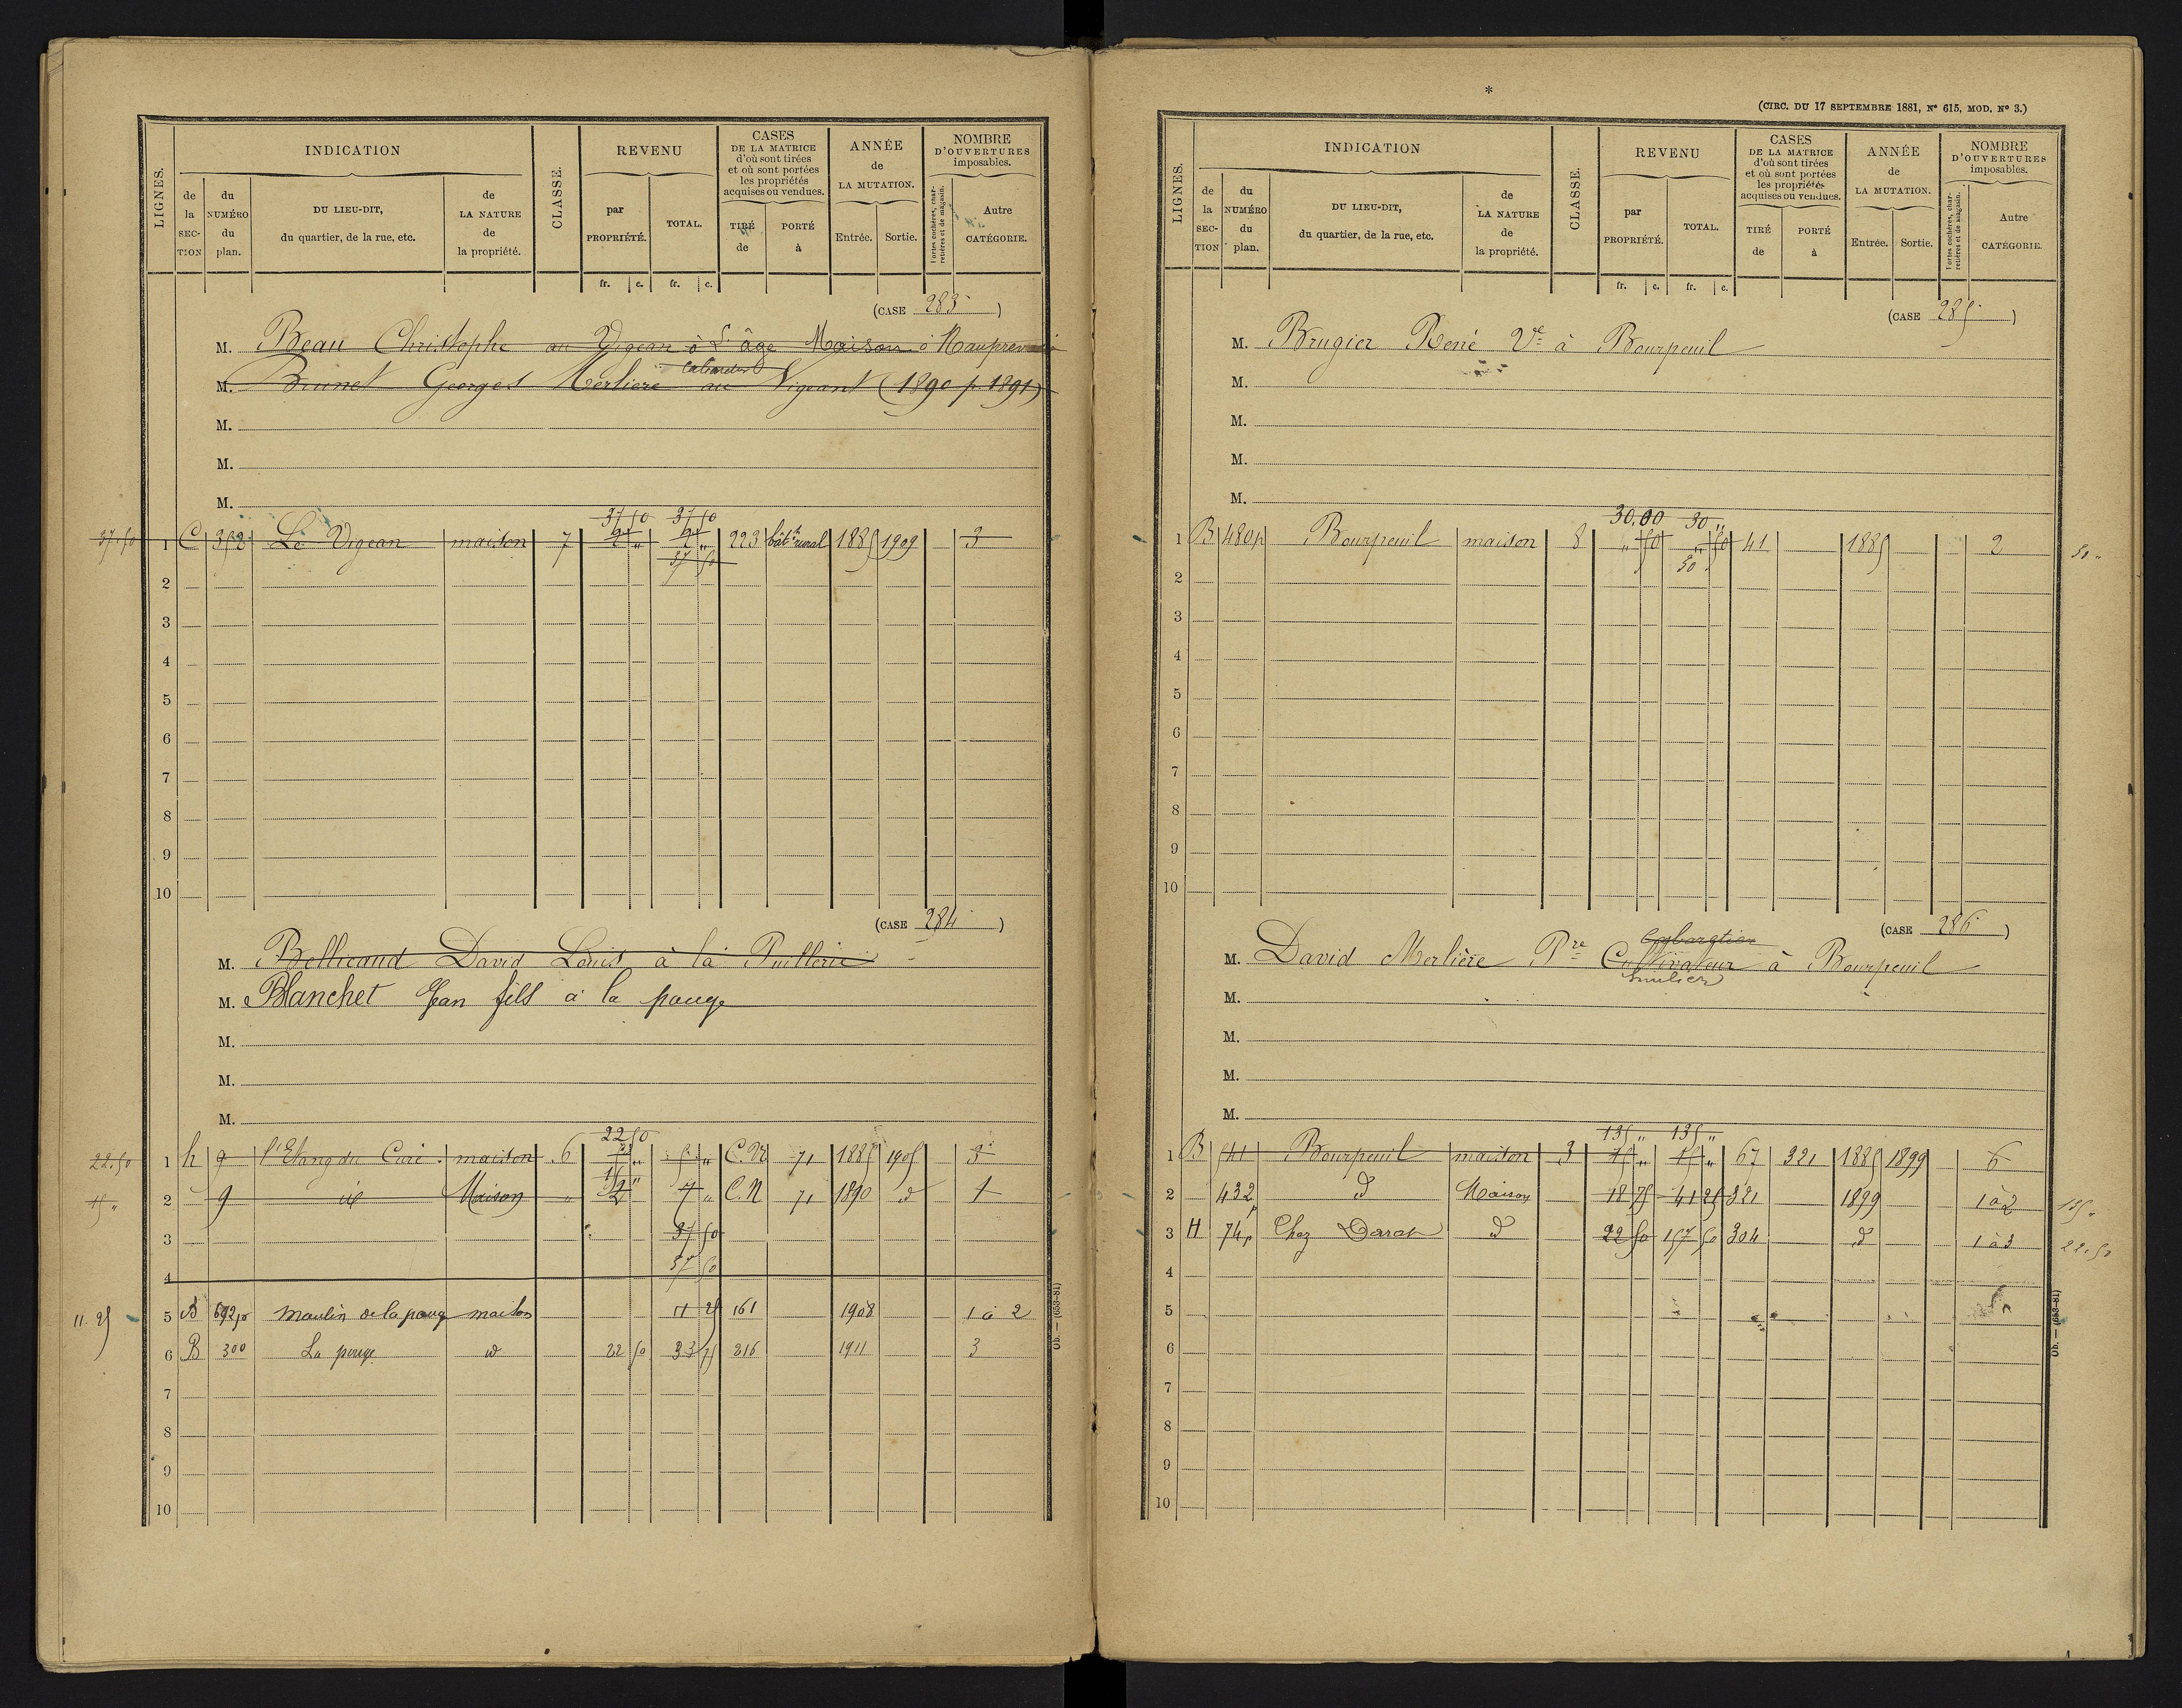 LIGNES.
INDICATION
de la SECTION
du NUMÉRO du plan.
DU LIEU-DIT, du quartier, de la rue, etc.
de LA NATURE de la propriété.
CLASSE.
REVENU
par PROPRIÉTÉ.
TOTAL.
fr. c. fr. c.
CASES DE LA MATRICE d'où sont tirées et où sont portées les propriétés acquises ou vendues.
TIRÉ de
PORTÉ à
ANNÉE de LA MUTATION.
Entrée. Sortie.
NOMBRE D'OUVERTURES imposables.
Portes cochères, charretières et de magasin.
Autre CATÉGORIE.
(CASE 283)
M. Beau Christophe au Vigean à L'âge Maison à
M. Brunet Georges Merliere au Vigeant (1890 p. 1891)
M.
M.
M.
37 50 37 50
37.50 1 C 352 Le Vigean maison 7 2 " 2 " 223 bât. rural 1885 1909 3
37 50
2
3
4
5
6
7
8
9
10
(CASE 284)
M. Bellicaud David Louis à la
M. Blanchet Jean fils à la pouge
M.
M.
M.
22 50
22.50 1 h 9 l'Etang du Curé maison 6 5 " C.N 71 1885 1905 3
15 " 2 9 id Maison " 2 7 " C.N 71 1890 d 1
3 37 50
4 37 50
11.25 5 B 692p moulin de la pouge maison 11 25 161 1908 1 à 2
6 B 300 La pouge id 22 50 33 75 216 1911 3
7
8
9
10
Ob. — (653-81)
*
(CIRC. DU 17 SEPTEMBRE 1881, N° 615, MOD. N° 3.)
LIGNES.
INDICATION
de la SECTION
du NUMÉRO du plan.
DU LIEU-DIT, du quartier, de la rue, etc.
de LA NATURE de la propriété.
CLASSE.
REVENU
par PROPRIÉTÉ.
TOTAL.
fr. c. fr. c.
CASES DE LA MATRICE d'où sont tirées et où sont portées les propriétés acquises ou vendues.
TIRÉ de
PORTÉ à
ANNÉE de LA MUTATION.
Entrée. Sortie.
NOMBRE D'OUVERTURES imposables.
Portes cochères, charretières et de magasin.
Autre CATÉGORIE.
(CASE 285)
M. Brugier René Ve à Bourpeuil
M.
M.
M.
M.
30.00 30 "
1 B 480p Bourpeuil maison 8 " 50 " 50 41 1885 2
2
3
4
5
6
7
8
9
10
(CASE 286)
Cabaretier
M. David Merlière Pre Cultivateur à Bourpeuil
M.
M.
M.
M.
135 " 135 "
1 B 41 Bourpeuil maison 3 15 " 15 " 67 321 1885 1899 6
2 432p d Maison 18 75 41 25 321 1899 1 à 2 135 "
3 H 74p Chez Darat d 22 50 157 50 304 d 1 à 3 22.50
4
5
6
7
8
9
10
Ob. — (653-81)